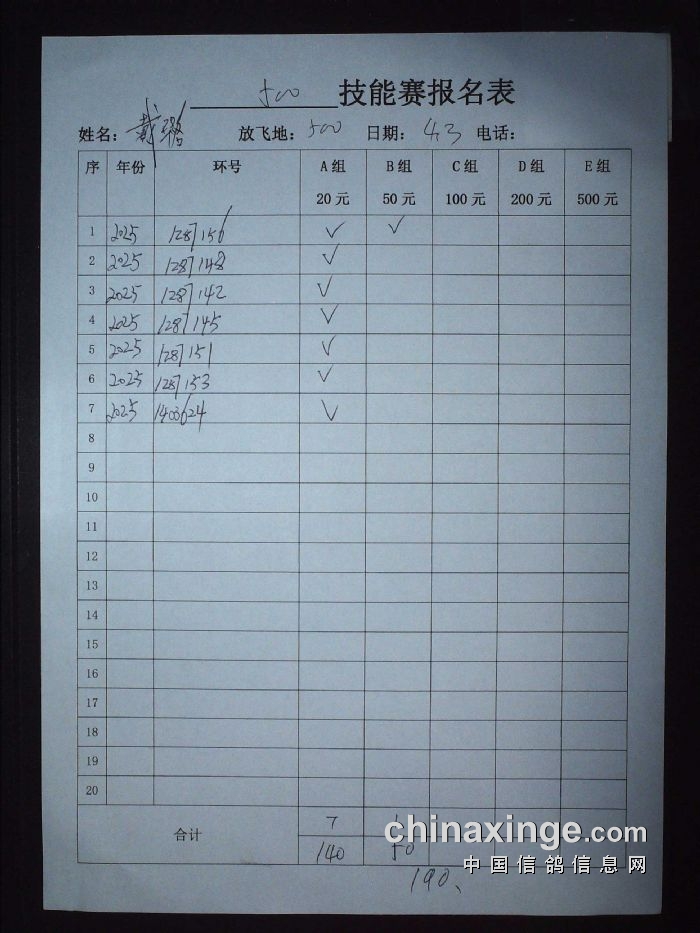 500 技能赛报名表
姓名: 戴 放飞地: 500 日期: 4.3 电话:
序 年份 环号 A 组 B 组 C 组 D 组 E 组
20 元 50 元 100 元 200 元 500 元
1 2025 1287156 ✓ ✓
2 2025 1287148 ✓
3 2025 1287142 ✓
4 2025 1287145 ✓
5 2025 1287151 ✓
6 2025 1287153 ✓
7 2025 1403624 ✓
8
9
10
11
12
13
14
15
16
17
18
19
20
合计 7 1
140 50
190、
chinaxinge.com
中国信鸽信息网